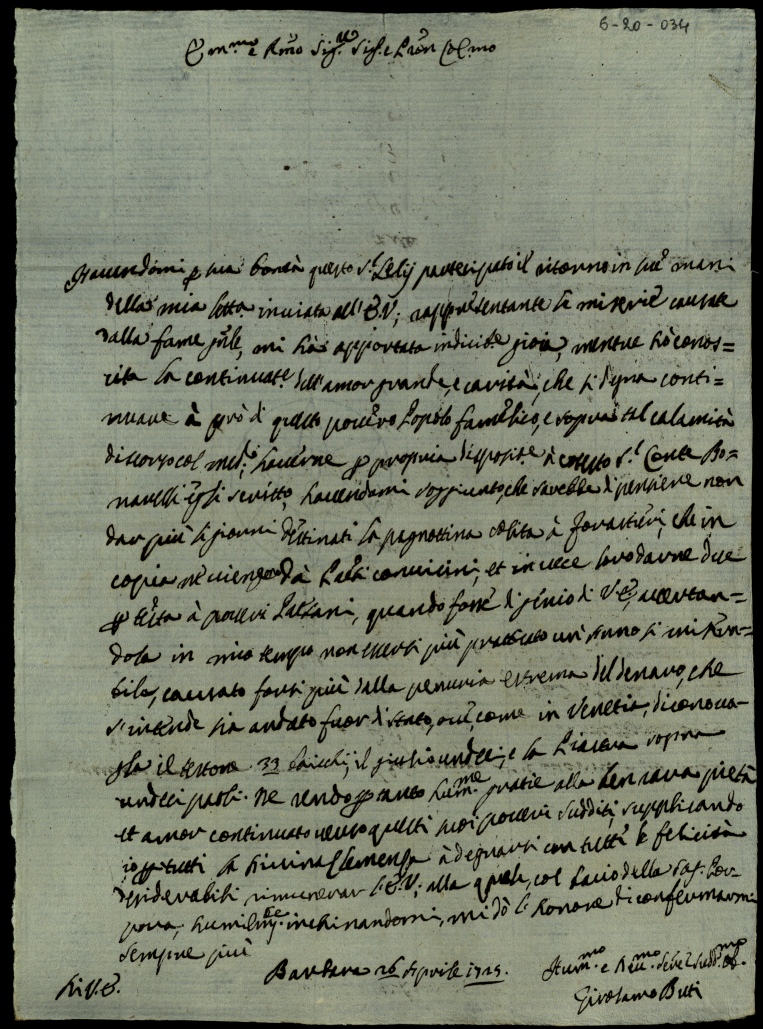 6-20-034
Em.mo e R.mo Sig.re Sig.e e Pron Col.mo
Havendomi p sua bontà questo S.r Lelij partecipato il ritorno in sue mani
della mia letta inviata all' E.V., rappresentante le miserie causate
dalla fame, mi hà apportata indicibile gioia, mentre hò conos=
cita la continuat.e dell'amor grande, e carità, che si degna conti=
nuare à prò di questo povero Popolo famelico, e sopra tal calamità
discorso col med.o haverne p propria disposit.e à cotesto S.r Conte Bo=
narelli scritto, havendomi soggiunto, che sarebbe di pensiere non
dar più li giorni destinati la pagnottina solita à forastieri, che in
copia ne viengono dà convicini, et in vece loro darne due
p testa à poveri Paesani, quando fosse di genio di V.E., accertan=
dola in mio tempo non essersi più un anno si miséra=
bile, causato forsi più dalla penuria estrema del denaro, che
s'intende sia andato fuor di stato, come in Venetia, dicono va=
glia il testone 33 baiocchi, il giulio undeci, e la Piastra sopra
undeci paoli. Ne rendo p tanto hum.me gratie alla ben rara pietà
et amor continuato verso questi suoi poveri sudditi, supplicando
io p tutti la Divina Clemenza à degnarsi con tutte le felicità
desiderabili rimunerar l'E.V., alla quale, col bacio della Sag. Por=
pora, humilm.te inchinandomi, mi dò l'honore di confermarmi
sempre più
Di V.E.
Barbara 26 Aprile 1729.
Hum.mo e Dev.mo
Girolamo Buti